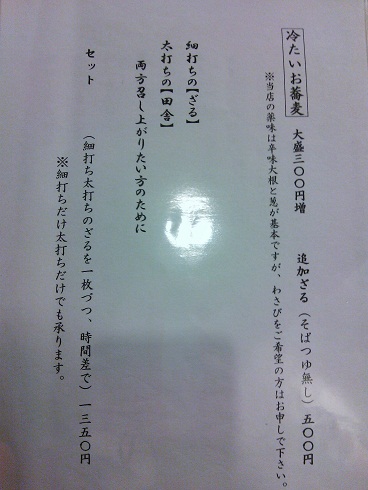 冷たいお蕎麦 大盛三〇〇円増 追加ざる（そばつゆ無し）五〇〇円
※当店の薬味は辛味大根と葱が基本ですが、わさびをご希望の方はお申し出下さい。
細打ちの【ざる】
太打ちの【田舎】
両方召し上がりたい方のために
セット （細打ち太打ちのざるを一枚づつ、時間差で）一三五〇円
※細打ちだけ太打ちだけでも承ります。